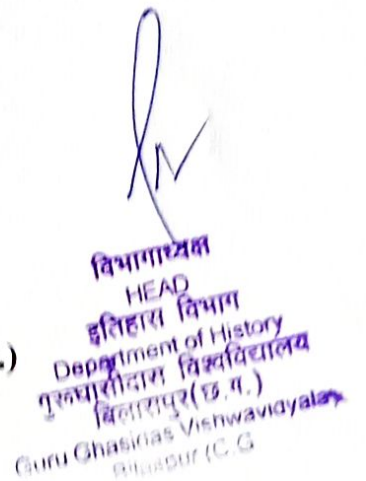 विभागाध्यक्ष
HEAD
इतिहास विभाग
.)
Department of History
गुरूघासीदास विश्वविद्यालय
बिलासपुर(छ.ग.)
Guru Ghasidas Vishwavidyalay
Bilaspur (C.G